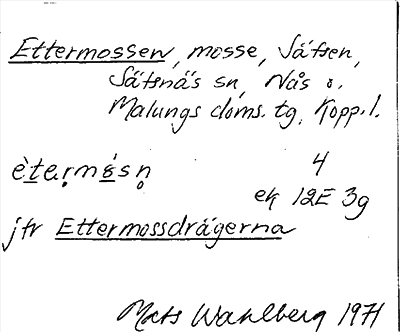 Ettermossen, mosse, Säfsen,
Säfsnäs sn, Nås o.
Malungs doms. tg, Kopp. l.
ètermǿsn 4
ek 12E 3g
jfr Ettermossdrägerna
Mats Wahlberg 1971